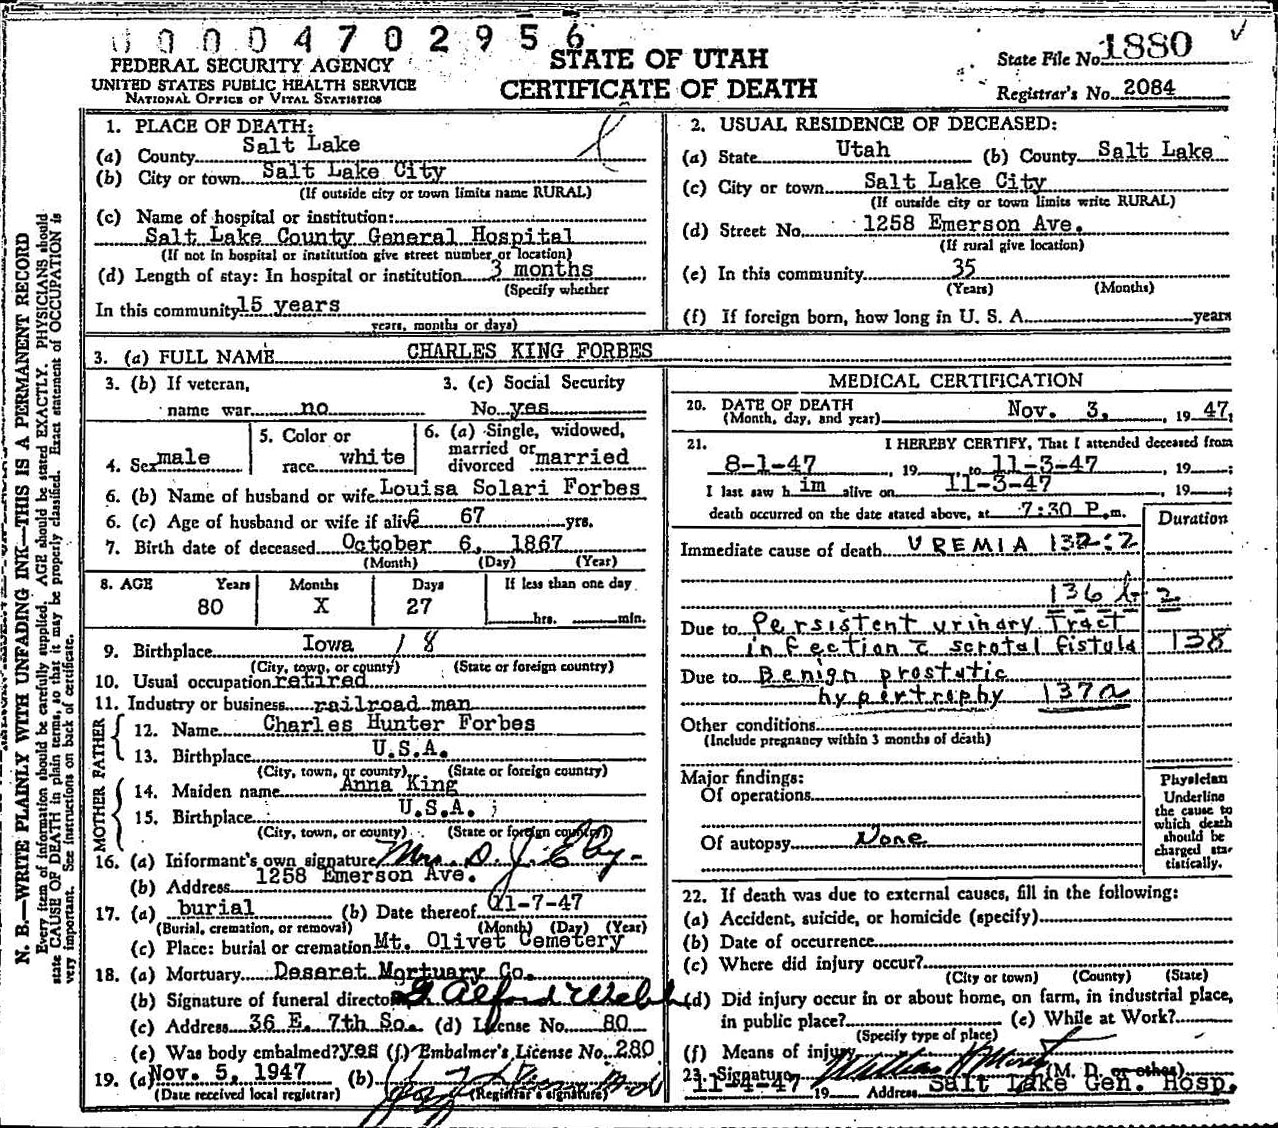 00004702956
FEDERAL SECURITY AGENCY
UNITED STATES PUBLIC HEALTH SERVICE
NATIONAL OFFICE OF VITAL STATISTICS
STATE OF UTAH
CERTIFICATE OF DEATH
State File No. 1880
Registrar's No. 2084
N. B.—WRITE PLAINLY WITH UNFADING INK—THIS IS A PERMANENT RECORD
Every item of information should be carefully supplied. AGE should be stated EXACTLY. PHYSICIANS should
state CAUSE OF DEATH in plain terms, so that it may be properly classified. Exact statement of OCCUPATION is
very important. See instructions on back of certificate.
1. PLACE OF DEATH:
(a) County Salt Lake
(b) City or town Salt Lake City
(If outside city or town limits name RURAL)
(c) Name of hospital or institution:
Salt Lake County General Hospital
(If not in hospital or institution give street number or location)
(d) Length of stay: In hospital or institution 3 months
(Specify whether
In this community 15 years
years, months or days)
2. USUAL RESIDENCE OF DECEASED:
(a) State Utah (b) County Salt Lake
(c) City or town Salt Lake City
(If outside city or town limits write RURAL)
(d) Street No. 1258 Emerson Ave.
(If rural give location)
(e) In this community 35
(Years) (Months)
(f) If foreign born, how long in U. S. A. years
3. (a) FULL NAME CHARLES KING FORBES
3. (b) If veteran,
name war no
3. (c) Social Security
No. yes
4. Sex male
5. Color or
race white
6. (a) Single, widowed,
married or
divorced married
6. (b) Name of husband or wife Louisa Solari Forbes
6. (c) Age of husband or wife if alive 67 yrs.
7. Birth date of deceased October 6, 1867
(Month) (Day) (Year)
8. AGE Years Months Days If less than one day
80 X 27 hrs. min.
9. Birthplace Iowa 18
(City, town, or county) (State or foreign country)
10. Usual occupation retired
11. Industry or business railroad man
FATHER
12. Name Charles Hunter Forbes
13. Birthplace U.S.A.
(City, town, or county) (State or foreign country)
MOTHER
14. Maiden name Anna King
15. Birthplace U.S.A.
(City, town, or county) (State or foreign country)
16. (a) Informant's own signature Mrs. D. J. Eby
(b) Address 1258 Emerson Ave.
17. (a) burial (b) Date thereof 11-7-47
(Burial, cremation, or removal) (Month) (Day) (Year)
(c) Place: burial or cremation Mt. Olivet Cemetery
18. (a) Mortuary Deseret Mortuary Co.
(b) Signature of funeral director
(c) Address 36 E. 7th So. (d) License No. 80
(e) Was body embalmed? yes (f) Embalmer's License No. 280
19. (a) Nov. 5, 1947 (b)
(Date received local registrar) (Registrar's signature)
MEDICAL CERTIFICATION
20. DATE OF DEATH
(Month, day, and year) Nov. 3, 1947
21. I HEREBY CERTIFY, That I attended deceased from
8-1-47, 19 , to 11-3-47, 19 ;
I last saw him alive on 11-3-47, 19 ;
death occurred on the date stated above, at 7:30 P.m.
Duration
Immediate cause of death UREMIA 132:2
136 b-2
Due to Persistent urinary Tract
infection c̄ scrotal fistula 138
Due to Benign prostatic
hypertrophy 137a
Other conditions
(Include pregnancy within 3 months of death)
Major findings:
Of operations
Of autopsy None
Physician
Underline
the cause to
which death
should be
charged sta-
tistically.
22. If death was due to external causes, fill in the following:
(a) Accident, suicide, or homicide (specify)
(b) Date of occurrence
(c) Where did injury occur?
(City or town) (County) (State)
(d) Did injury occur in or about home, on farm, in industrial place,
in public place? (e) While at Work?
(Specify type of place)
(f) Means of injury
23. Signature William (M. D. or other)
11-4-47 19 Address Salt Lake Gen. Hosp.